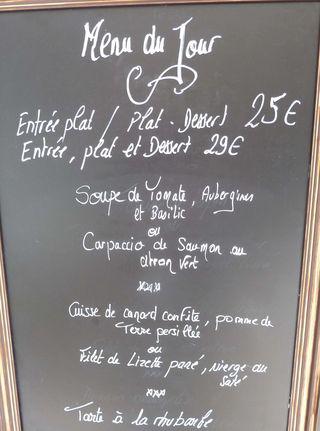 Menu du Jour
Entrée plat / Plat - Dessert 25€
Entrée, plat et Dessert 29€
Soupe de Tomate, Aubergines
et Basilic
ou
Carpaccio de Saumon au
citron vert
xxxx
Cuisse de canard confite, pomme de
Terre persillée
ou
Filet de Lizette pané, vierge au
xxx
Tarte à la rhubarbe